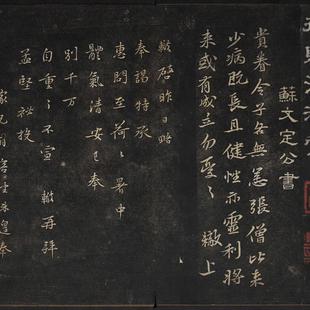 蘇文定公書
貴眷令子各無恙張僧比來
少病既長且健性亦靈利將
來或有成立勿憂〻轍上
轍啓昨日略
奉謁特承
惠問至荷〻暑中
體氣清安已奉
別千万
自重〻不宣 轍再拜
孟堅祕挍